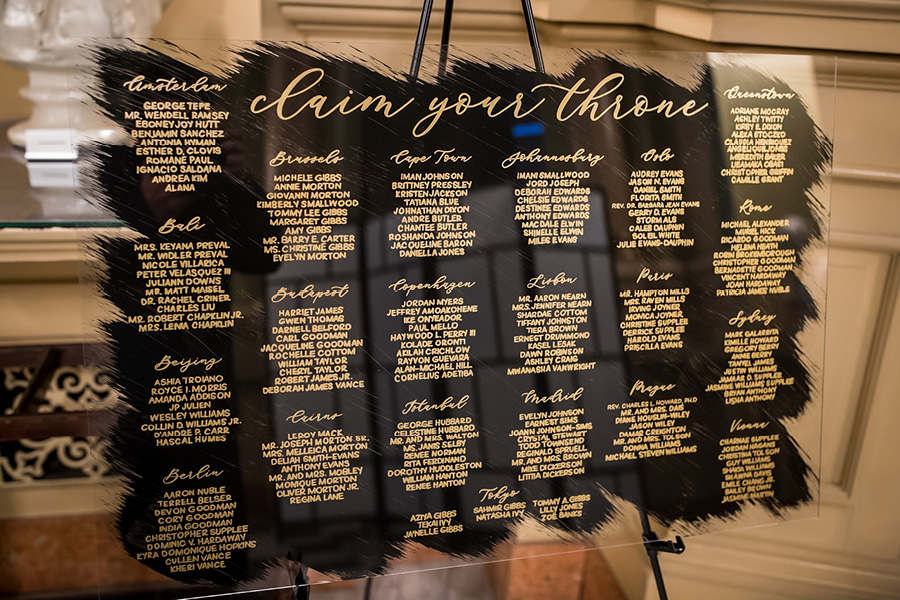 claim your throne
Amsterdam
GEORGE TEPE
MR. WENDELL RAMSEY
EBONEYJOY HUTT
BENJAMIN SANCHEZ
ANTONIA HYMAN
ESTHER D. CLOVIS
ROMANE PAUL
IGNACIO SALDANA
ANDREA KIM
ALANA
Bali
MRS. KEYANA PREVAL
MR. WIDLER PREVAL
NICOLE VILLARICA
PETER VELASQUEZ III
JULIANN DOWNS
MR. MATT MAISEL
DR. RACHEL CRINER
CHARLES LIU
MR. ROBERT CHAPKLIN JR.
MRS. LENA CHAPKLIN
Beijing
ASHIA TROIANO
ROYCE I. MORRIS
AMANDA ADDISON
JP JULIEN
WESLEY WILLIAMS
COLLIN D. WILLIAMS JR.
D'ANDRE P. CARR
HASCAL HUMES
Berlin
AARON NUBLE
TERRELL BELSER
DEVON GOODMAN
CORY GOODMAN
INDIA GOODMAN
CHRISTOPHER SUPPLEE
DOMINIC V. HARDAWAY
KYRA DOMONIQUE HOPKINS
CULLEN VANCE
KHERI VANCE
Brussels
MICHELE GIBBS
ANNIE MORTON
GIOVANNI MORTON
KIMBERLY SMALLWOOD
TOMMY LEE GIBBS
MARGARET GIBBS
AMY GIBBS
MR. BARRY E. CARTER
MS. CHRISTINE GIBBS
EVELYN MORTON
Budapest
HARRIET JAMES
GWEN THOMAS
DARNELL BELFORD
CARL GOODMAN
JACQUELINE GOODMAN
ROCHELLE COTTOM
WILLIAM TAYLOR
CHERYL TAYLOR
ROBERT JAMES JR.
DEBORAH JAMES VANCE
Cairns
LEROY MACK
MR. JOSEPH MORTON SR.
MRS. MELLEICA MORTON
DEIJAH SMITH-EVANS
ANTHONY EVANS
MR. AND MRS. MOBLEY
MONIQUE MORTON
OLIVER MORTON JR.
REGINA LANE
Cape Town
IMAN JOHNSON
BRITTNEY PRESSLEY
KRISTEN JACKSON
TATIANA BLUE
JOHNATHAN DIXON
ANDRE BUTLER
CHANTEE BUTLER
ROSHANDA JOHNSON
JACQUELINE BARON
DANIELLA JONES
Copenhagen
JORDAN MYERS
JEFFREY AMOAKOHENE
IKE ONYEADOR
PAUL MELLO
HAYWOOD L. PERRY III
KOLADE ORONTI
AKILAH CRICHLOW
RAYVON GUEVARA
ALAN-MICHAEL HILL
CORNELIUS ADETIBA
Istanbul
GEORGE HUBBARD
CELESTINE HUBBARD
MR. AND MRS. WALTON
MS. JANIS SELBY
RENEE NORMAN
RITA FERDINAND
DOROTHY HUDDLESTON
WILLIAM HANTON
RENEE HANTON
Johannesburg
IMANI SMALLWOOD
JORD JOSEPH
DEBORAH EDWARDS
CHELSIE EDWARDS
DESTINEE EDWARDS
ANTHONY EDWARDS
MAGDALE ELWIN
SHINELLE ELWIN
MILES EVANS
Lisbon
MR. AARON NEARN
MRS. JENNIFER NEARN
SHARDAE COTTOM
TIFFANY JOHNSTON
TIERA BROWN
ERNEST DRUMMOND
KASEL LESAK
DAWN ROBINSON
ASHLEY CRAIG
MWANASHA VANWRIGHT
Madrid
EVELYN JOHNSON
EARNEST SIMS
JOANN JOHNSON-SIMS
CRYSTAL STEWART
TODD TOWNSEND
REGINALD SPRUELL
MR. AND MRS. BROWN
MIKE DICKERSON
LITTIA DICKERSON
Tokyo
AZIYA GIBBS
TEKAI IVY
JA'NELLE GIBBS
SAHMIR GIBBS
NATASHA IVY
TOMMY A GIBBS
LILLY JONES
ZOE BANKS
Oslo
AUDREY EVANS
JASON N. EVANS
DANIEL SMITH
FLORITA SMITH
REV. DR. BARBARA JEAN EVANS
GERRY D. EVANS
STORM ALS
CALEB DAUPHIN
SOLEIL WHITE
JULIE EVANS-DAUPHIN
Paris
MR. HAMPTON MILLS
MRS. RAVEN MILLS
IRVING JOYNER
MONICA JOYNER
CHRISTINE SUPPLEE
DERRICK SUPPLEE
HAROLD EVANS
PRISCILLA EVANS
Prague
REV. CHARLES L. HOWARD, PH.D
MR. AND MRS. DAS
DIANE HOUSLIN-JR
JASON WILEY
DAMAR CREIGHTON
MR. AND MRS. TOLSON
DONNA WILLIAMS
MICHAEL STEVEN WILLIAMS
Queenstown
ADRIANE MCCRAY
ASHLEY TWITTY
KIRBY E. DIXON
ALEXA STOCZKO
CLAUDIA HENRIQUEZ
MEREDITH BAKER
CHRISTOPHER GRIFFIN
CAMILLE GRANT
Rome
MICHAEL ALEXANDER
MURIEL NICK
RICARDO GOODMAN
HELENA HEATH
ROBIN BROKENBOROUGH
CHRISTOPHER GOODMAN
BERNADETTE GOODMAN
VINCENT HARDAWAY
JOAN HARDAWAY
PATRICIA JAMES HUBIE
Sydney
MARK GALARRITA
EMILLE HOWARD
GREGORY BERRY
ANNIE BERRY
JUSTIN WILLIAMS
JAMAL WILLIAMS
JAKIMAH D. WILLIAMS SUPPLEE
BRYAN ANTHONY
LISHA ANTHONY
Vienna
CHARNAE SUPPLEE
JORDAN HUGGINS
CHRISTINA TOLSON
GUY WILLIAMS
SHADIA WILLIAMS
SHAWNA DAVIS
EMILE CHANG JR.
HARLEY BROWN
JASMINE MARTIN